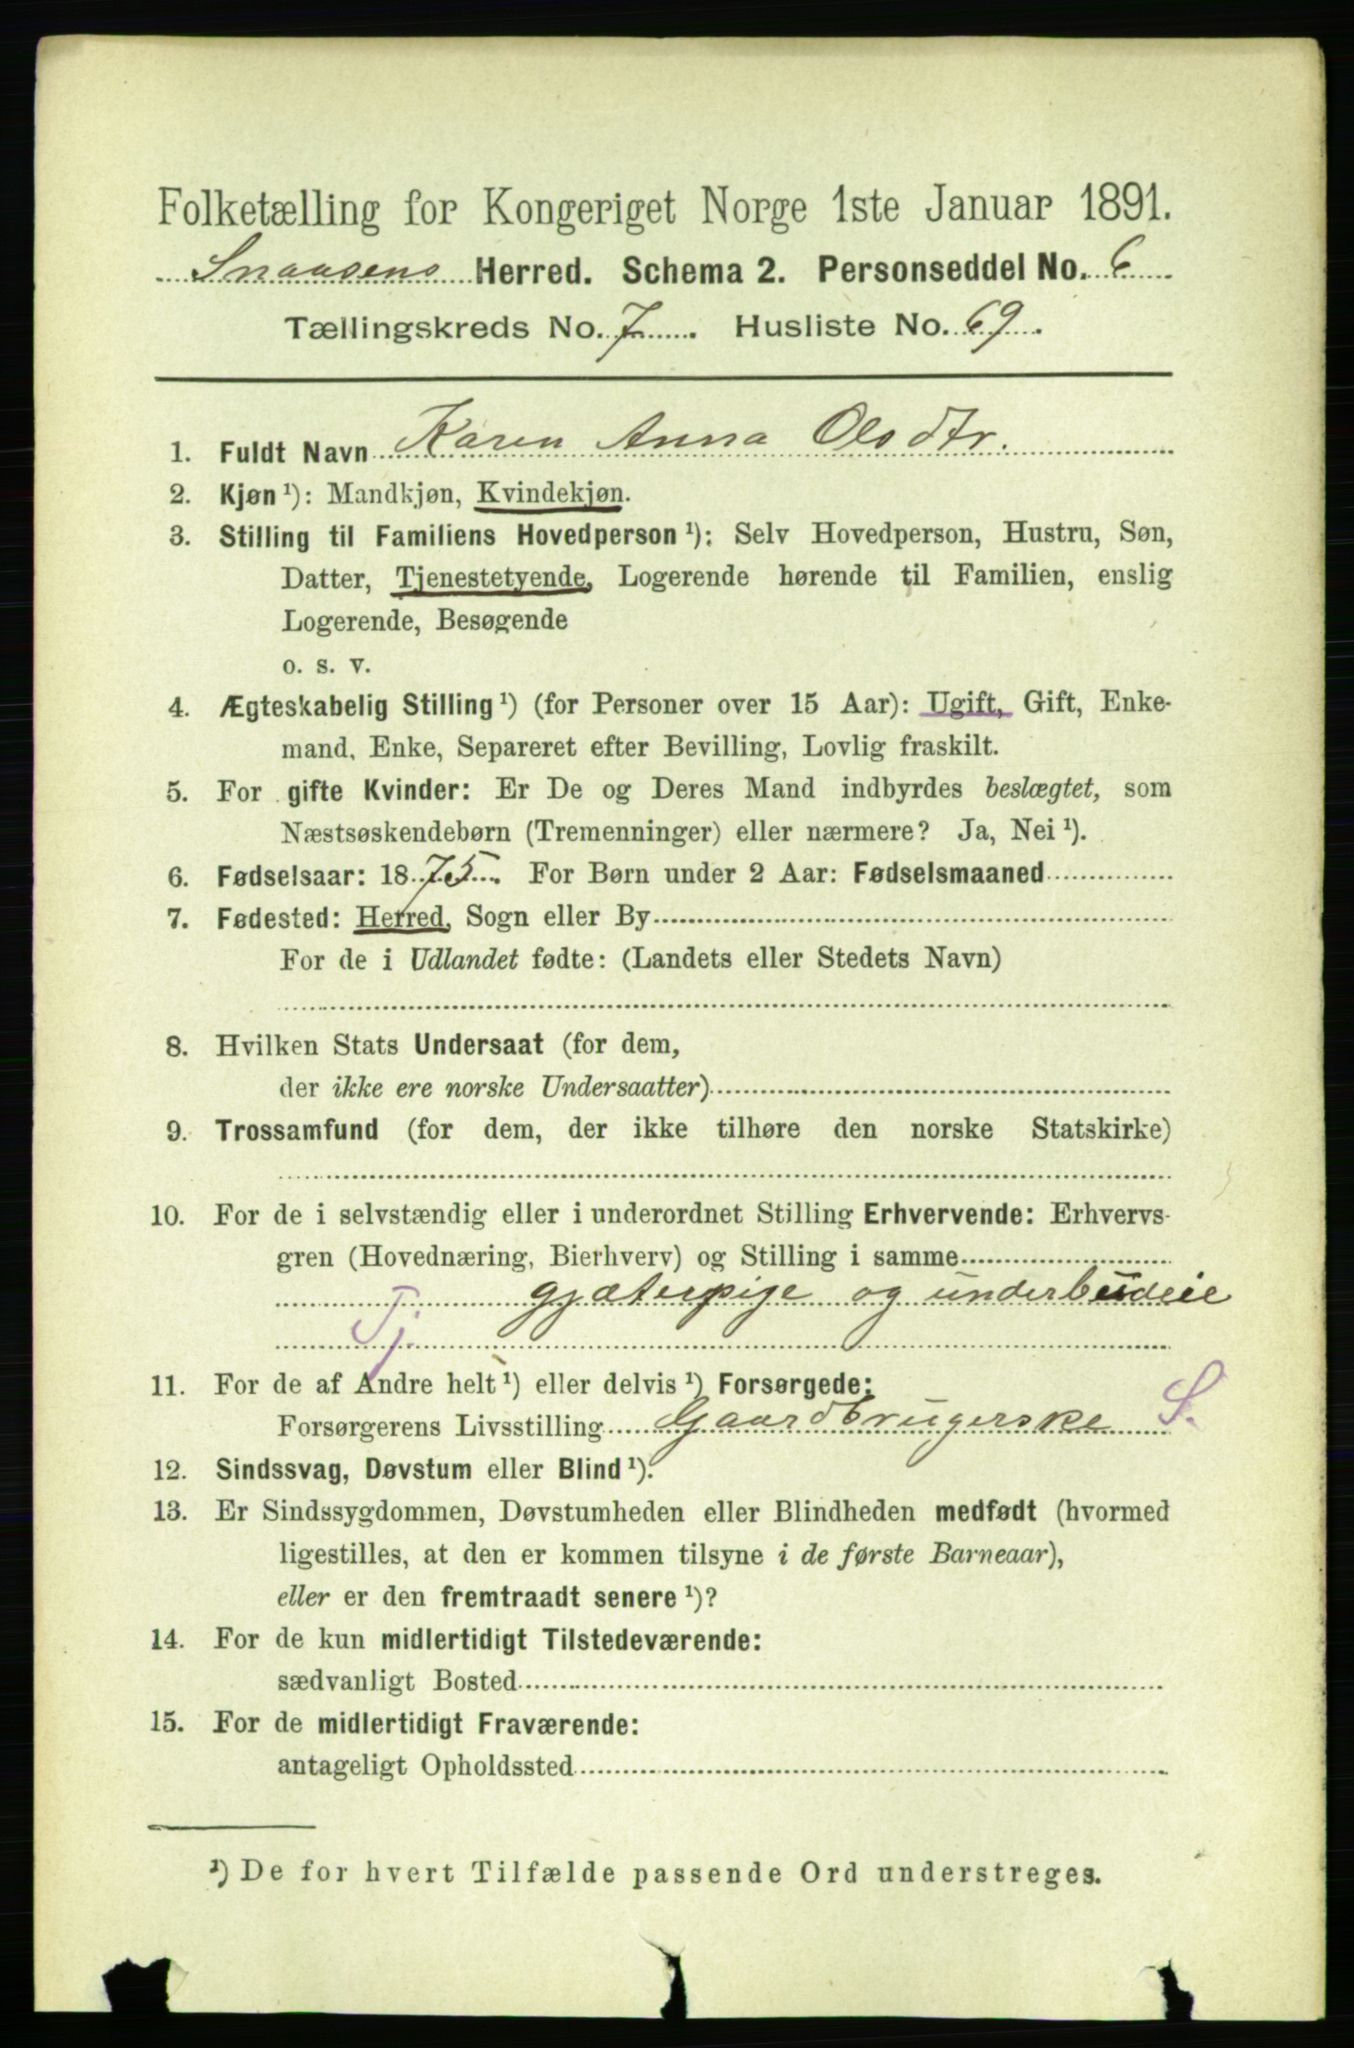 Folketælling for Kongeriget Norge 1ste Januar 1891.
Snaasens Herred. Schema 2. Personseddel No. 6
Tællingskreds No. 7. Husliste No. 69.
1. Fuldt Navn Karen Anna Olsdtr.
2. Kjøn ¹): Mandkjøn, Kvindekjøn.
3. Stilling til Familiens Hovedperson ¹): Selv Hovedperson, Hustru, Søn,
Datter, Tjenestetyende, Logerende hørende til Familien, enslig
Logerende, Besøgende
o. s. v.
4. Ægteskabelig Stilling ¹) (for Personer over 15 Aar): Ugift, Gift, Enke-
mand, Enke, Separeret efter Bevilling, Lovlig fraskilt.
5. For gifte Kvinder: Er De og Deres Mand indbyrdes beslægtet, som
Næstsøskendebørn (Tremenninger) eller nærmere? Ja, Nei ¹).
6. Fødselsaar: 1875. For Børn under 2 Aar: Fødselsmaaned
7. Fødested: Herred, Sogn eller By
For de i Udlandet fødte: (Landets eller Stedets Navn)
8. Hvilken Stats Undersaat (for dem,
der ikke ere norske Undersaatter)
9. Trossamfund (for dem, der ikke tilhøre den norske Statskirke)
10. For de i selvstændig eller i underordnet Stilling Erhvervende: Erhvervs-
gren (Hovednæring, Bierhverv) og Stilling i samme
gjæterpige og underbudeie
Tj.
11. For de af Andre helt ¹) eller delvis ¹) Forsørgede:
Forsørgerens Livsstilling Gaardbrugerske S.
12. Sindssvag, Døvstum eller Blind ¹).
13. Er Sindssygdommen, Døvstumheden eller Blindheden medfødt (hvormed
ligestilles, at den er kommen tilsyne i de første Barneaar),
eller er den fremtraadt senere ¹)?
14. For de kun midlertidigt Tilstedeværende:
sædvanligt Bosted
15. For de midlertidigt Fraværende:
antageligt Opholdssted
¹) De for hvert Tilfælde passende Ord understreges.